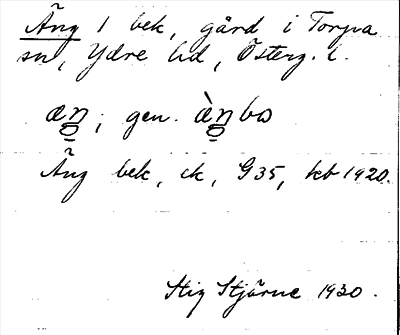 Äng 1 bek, gård i Torpa
sn, Ydre hd, Österg. l.
æŋ; gen. æ̀ŋbo
Äng bek, ck, G35, kb 1920.
Stig Stjärne 1930.